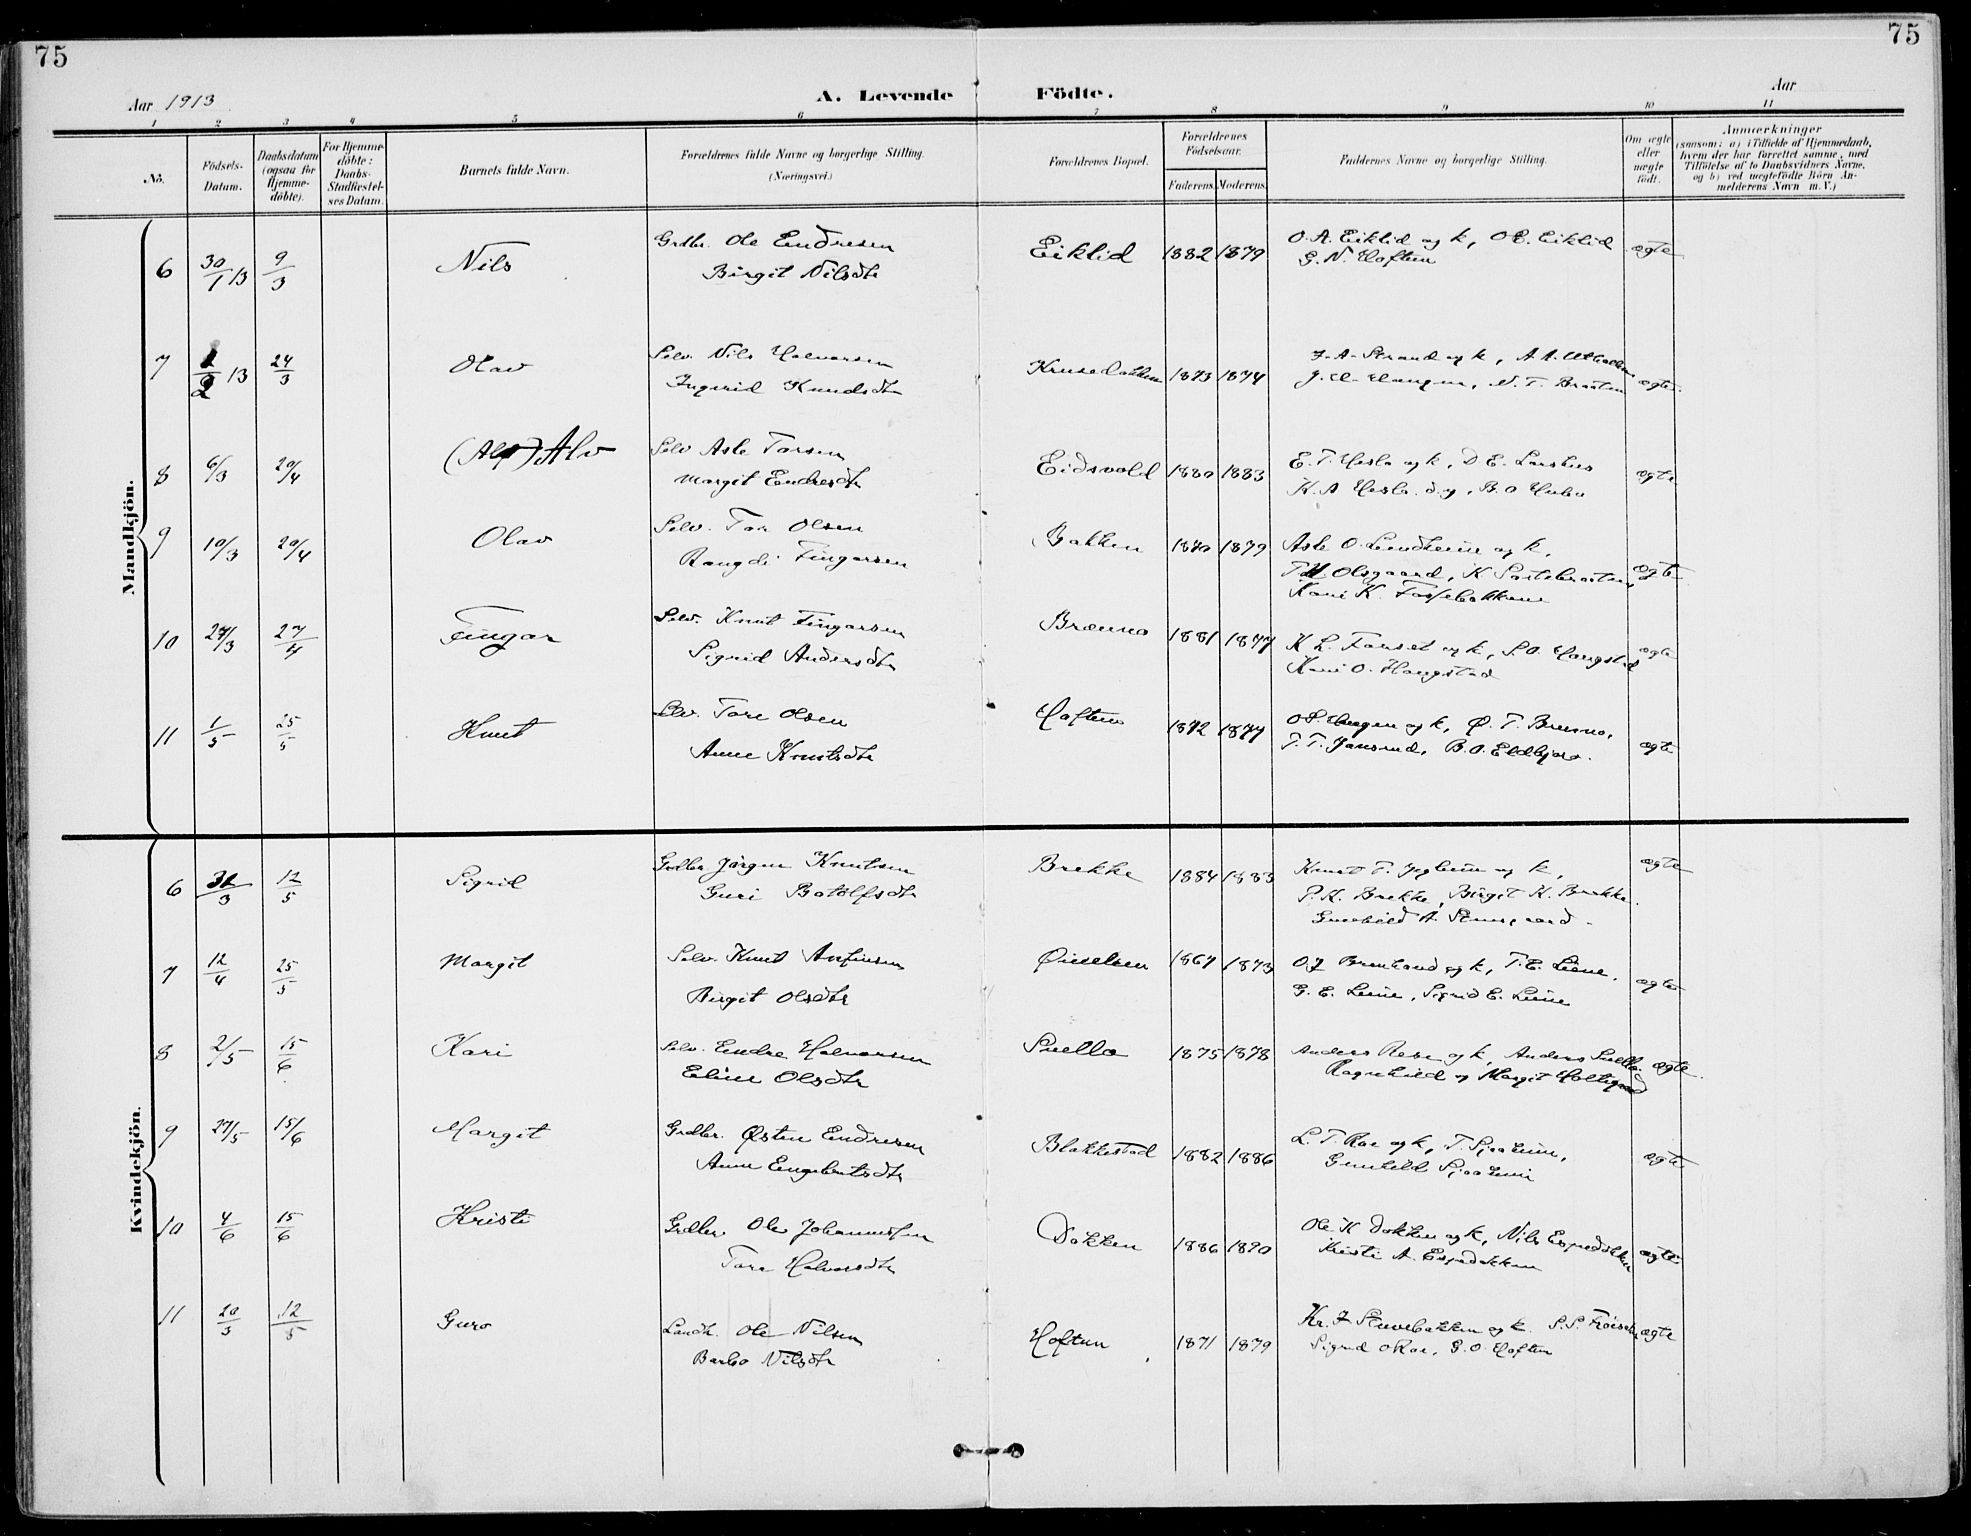 75
75
Aar 1913
A. Levende Födte.
Aar
1 2 3 4 5 6 7 8 9 10 11
No.
Födsels-Datum.
Daabsdatum (ogsaa for Hjemme-döbte).
For Hjemme-döbte: Daabs-Stadfæstel-ses Datum.
Barnets fulde Navn.
Forældrenes fulde Navne og borgerlige Stilling.
(Næringsvei.)
Forældrenes Bopæl.
Forældrenes Födselsaar.
Faderens. Moderens.
Faddernes Navne og borgerlige Stilling.
Om ægte eller uægte födt.
Anmærkninger
(saasom: a) i Tilfælde af Hjemmedaab, hvem der har forrettet samme, med Tilföielse af to Daabsvidners Navne, og b) ved uægtefödte Börn An-melderens Navn m. V.)
Mandkjön.
6 30/1 13 9/3 Nils Grdbr. Ole Endresen Eiklid 1882 1879 O. A. Eiklid og k, O E. Eiklid ægte
Birgit Nilsdtr G. N. Haftun
7 1/2 13 24/3 Olav Selv. Nils Halvorsen 1873 1874 J. A. Strand og k, A A.
Ingerid Knudsdtr N. T. Braaten ægte.
8 6/3 20/4 (Alf) Alv Selv Asle Torsen Eidsvold 1880 1883 E. T. Hesla og k, D E. Larshus ægte
Margit Endresdtr K. A Hesla B. O
9 10/3 20/4 Olav Selv. Tor Olsen Bakken 1879 Asle O. Lundheim og k, ægte
Rangdi Fingarsen Olsgaard, K
Kari K.
10 27/3 27/4 Fingar Selv. Knut Fingarsen Brenno 1881 1877 K L. Farset og k, S. O. Haugstad ægte
Sigrid Andersdtr Kari O. Haugstad
11 1/5 25/5 Knut Selv. Tore Olsen Haftun 1872 1877 og k, Ø. T. Brenno,
Anne Knutsdtr T. T. Jansrud, B. O. Eldbjør. ægte
Kvindekjön.
6 31/3 12/5 Sigrid Grdbr Jørgen Knutsen Brekke 1884 1883 Knut T. og k, ægte
Guri Botolfsdtr P. K. Brekke, Birgit K. Brekke.
Gunhild A.
7 12/4 25/5 Margit Selv. Knut Anfinsen 1873 O J og k, T. E. Leine. ægte
Birgit Olsdtr G. E. Leine, Sigrid E. Leine
8 2/5 15/6 Kari Selv. Endre Halvorsen Snello 1875 1878 Anders og k, Anders Snello. ægte.
Eline Olsdtr Ragnhild og Margit
9 27/5 15/6 Margit Grdbr. Østen Endresen Blakkestad 1882 1886 L. T. Roe og k, T. Sjaaheim, ægte
Anne Engebretsdtr Gunhild Sjaaheim
10 4/6 15/6 Kristi Grdbr. Ole Johannesen Dokken 1886 1890 Ole K Dokken og k, Nils Espedokken ægte
Tore Halvorsdtr Kristi A. Espedokken
11 20/3 12/5 Guro Landh. Ole Nilsen Hoftun 1871 1879 Kr. J og k. S. S. ægte
Barbo Nilsdtr Sigrid O Roe, G. O. Haftun